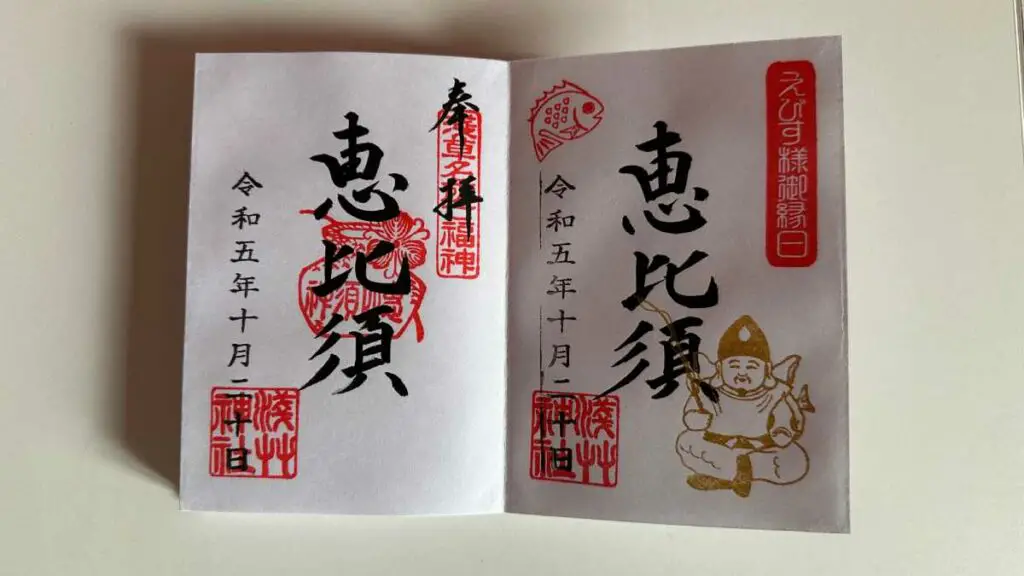 えびす様御縁日
恵比須
令和五年十月二十日
淺艸神社
奉拝
浅草名所七福神
恵比須
令和五年十月二十日
淺艸神社